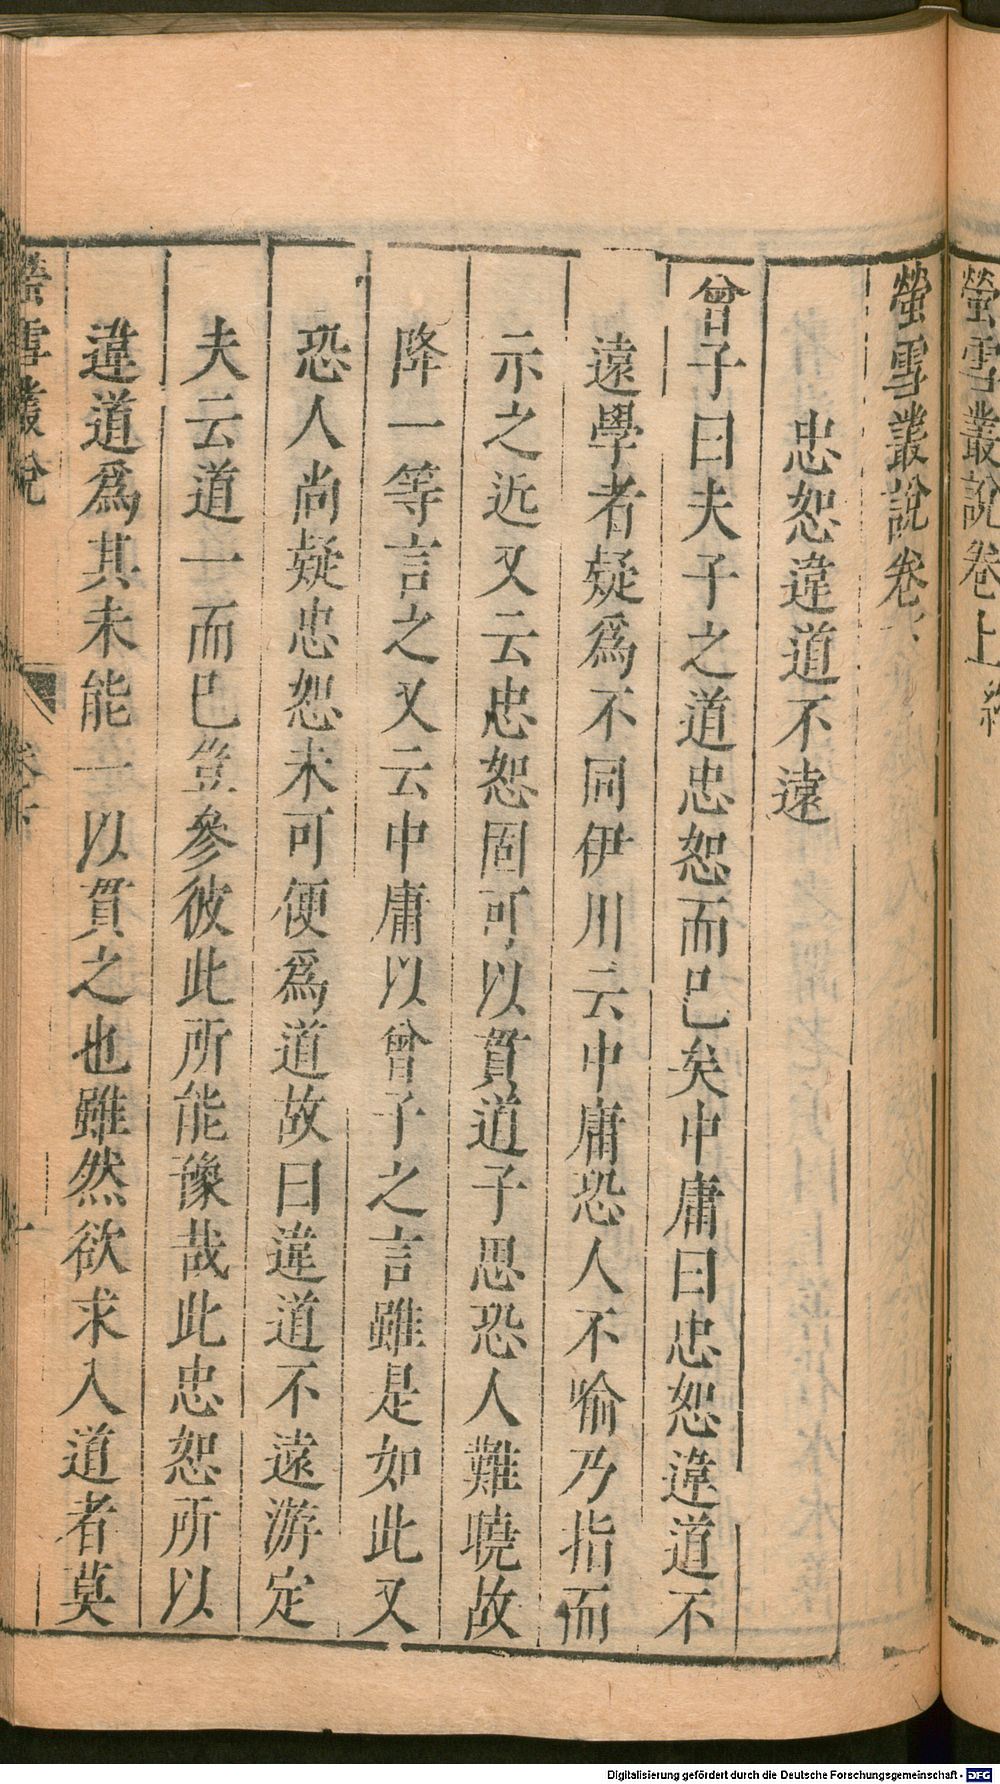 螢雪叢說卷上終
螢雪叢說卷下
忠恕違道不遠
曾子曰夫子之道忠恕而已矣中庸曰忠恕違道不
遠學者疑爲不同伊川云中庸恐人不喻乃指而
示之近又云忠恕固可以貫道子思恐人難曉故
降一等言之又云中庸以曾子之言雖是如此又
恐人尚疑忠恕未可便爲道故曰違道不遠游定
夫云道一而已豈參彼此所能豫哉此忠恕所以
違道爲其未能一以貫之也雖然欲求入道者莫
螢雪叢說
卷下
一
Digitalisierung gefördert durch die Deutsche Forschungsgemeinschaft - DFG